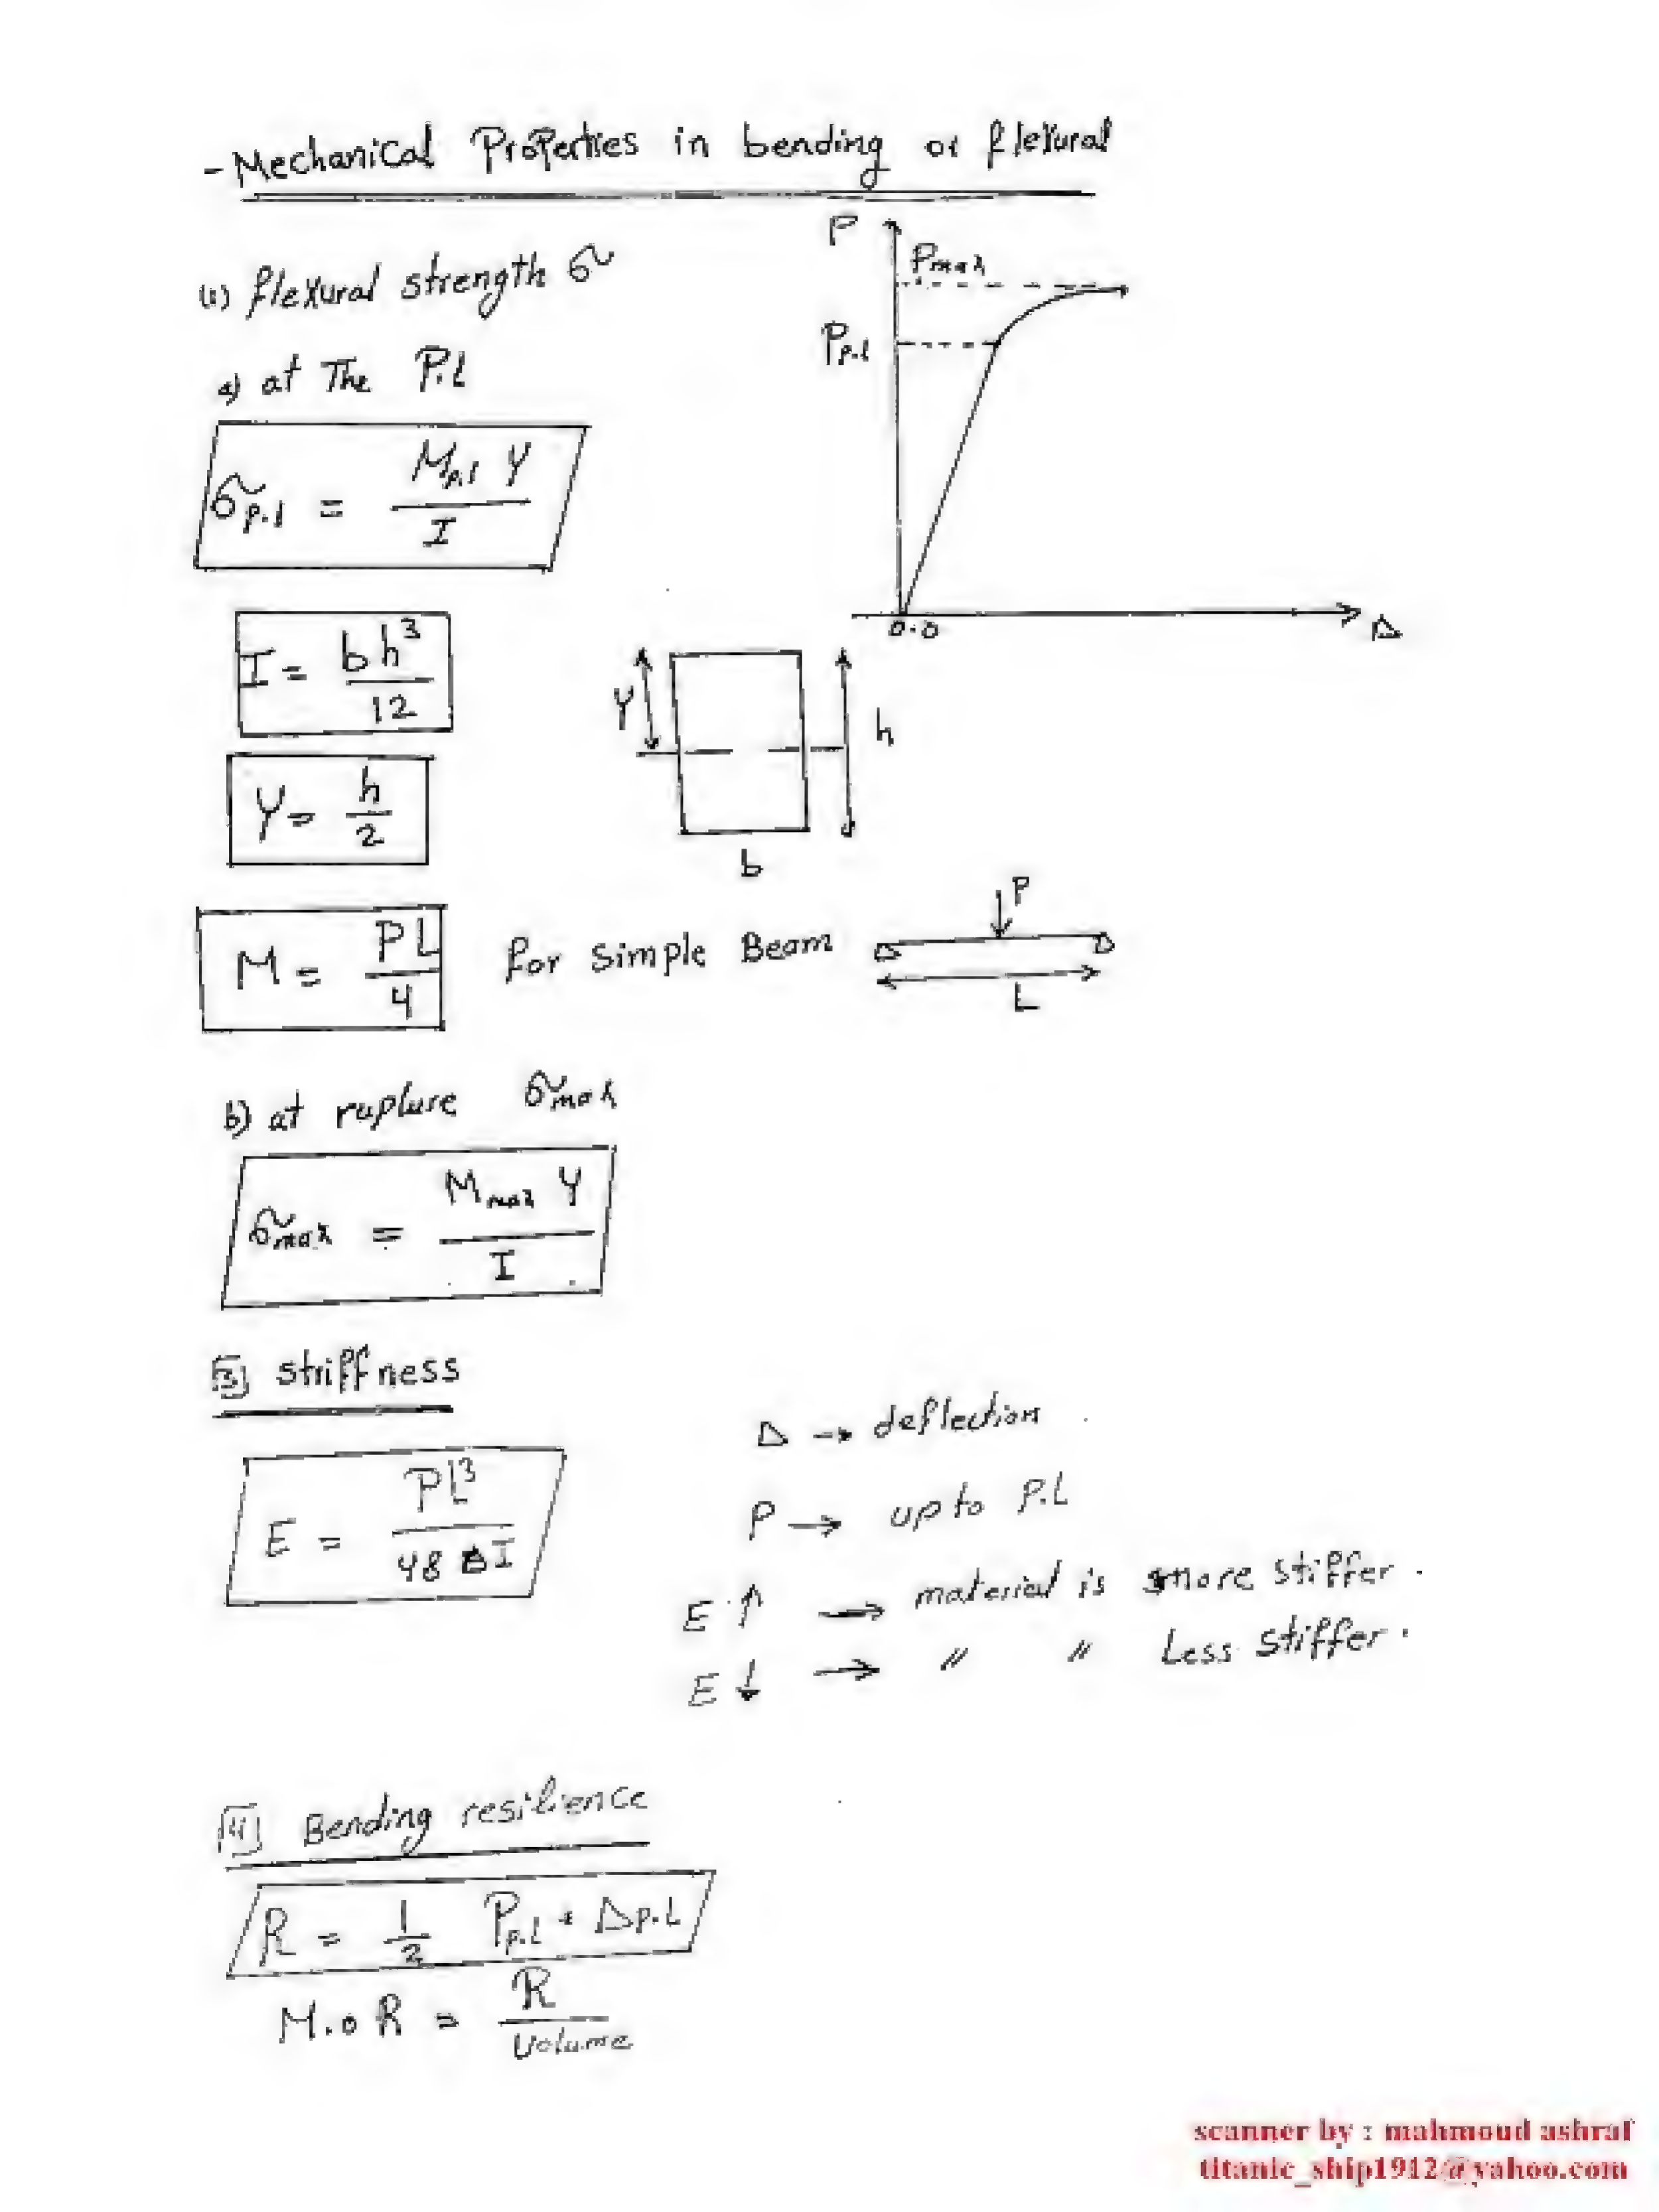 - Mechanical Properties in bending or flexural
(1) flexural strength σ
a) at The P.L
σp.l = Mp.l Y / I
I = b h³ / 12
Y = h / 2
M = PL / 4 for simple Beam
P
Pmax
Pp.l
0.0
Δ
Y
h
b
P
L
b) at rupture σmax
σmax = Mmax Y / I
[3] stiffness
E = PL³ / 48 Δ I
Δ → deflection
P → up to P.L
E ↑ → material is more stiffer.
E ↓ → 〃 〃 Less stiffer.
[4] Bending resilience
R = 1/2 Pp.L * Δp.L
M.o R = R / Volume
scanner by : mahmoud ashraf
titanic_ship1912@yahoo.com